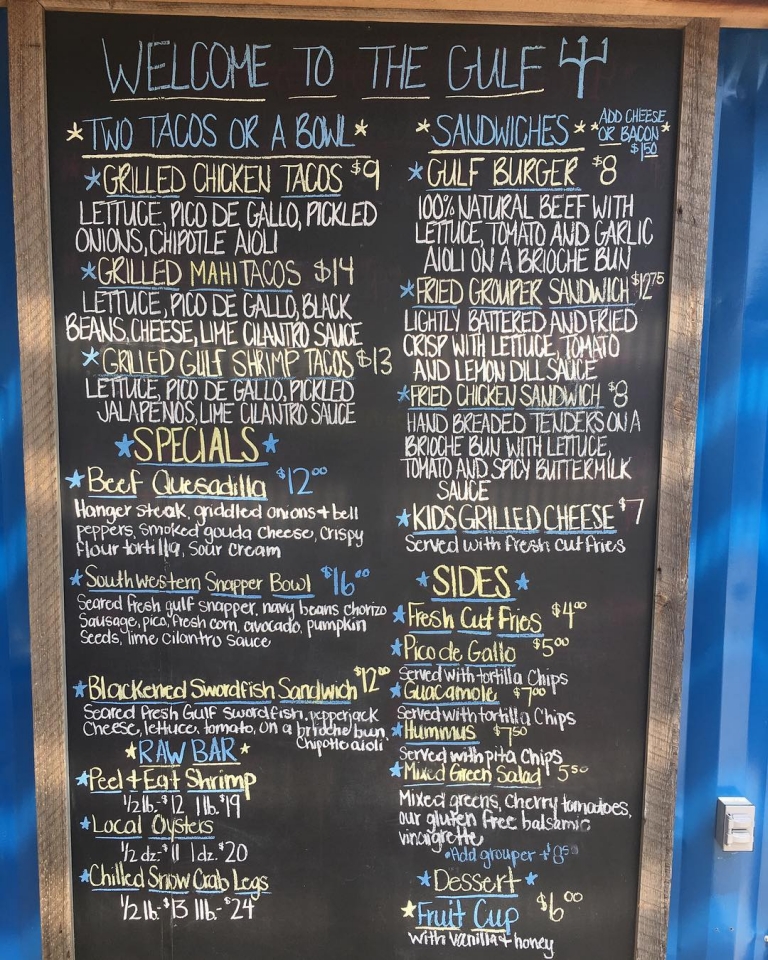 WELCOME TO THE GULF
TWO TACOS OR A BOWL
GRILLED CHICKEN TACOS $9
LETTUCE, PICO DE GALLO, PICKLED
ONIONS, CHIPOTLE AIOLI
GRILLED MAHI TACOS $14
LETTUCE, PICO DE GALLO, BLACK
BEANS, CHEESE, LIME CILANTRO SAUCE
GRILLED GULF SHRIMP TACOS $13
LETTUCE, PICO DE GALLO, PICKLED
JALAPENOS, LIME CILANTRO SAUCE
SPECIALS
Beef Quesadilla $12.00
Hanger steak, griddled onions + bell
peppers, smoked gouda cheese, crispy
flour tortilla, sour cream
Southwestern Snapper Bowl $16.00
Seared fresh gulf snapper, navy beans chorizo
Sausage, pico, fresh corn, avocado, pumpkin
Seeds, lime cilantro sauce
Blackened Swordfish Sandwich $12.00
Seared fresh Gulf swordfish, pepperjack
Cheese, lettuce, tomato, on a brioche bun,
Chipotle aioli
RAW BAR
Peel + Eat Shrimp
1/2 lb.-$12 1 lb.-$19
Local Oysters
1/2 dz.-$11 1 dz.-$20
Chilled Snow Crab Legs
1/2 lb.-$13 1 lb.-$24
SANDWICHES
ADD CHEESE
OR BACON
$1.50
GULF BURGER $8
100% NATURAL BEEF WITH
LETTUCE, TOMATO AND GARLIC
AIOLI ON A BRIOCHE BUN
FRIED GROUPER SANDWICH $12.75
LIGHTLY BATTERED AND FRIED
CRISP WITH LETTUCE, TOMATO
AND LEMON DILL SAUCE
FRIED CHICKEN SANDWICH $8
HAND BREADED TENDERS ON A
BRIOCHE BUN WITH LETTUCE,
TOMATO AND SPICY BUTTERMILK
SAUCE
KIDS GRILLED CHEESE $7
Served with fresh cut fries
SIDES
Fresh Cut Fries $4.00
Pico de Gallo $5.00
Served with tortilla Chips
Guacamole $7.00
Served with tortilla Chips
Hummus $7.50
Served with pita Chips
Mixed Green Salad 5.50
Mixed greens, Cherry tomatoes,
our gluten free balsamic
vinaigrette
Add grouper +8.50
Dessert
Fruit Cup $6.00
with vanilla + honey